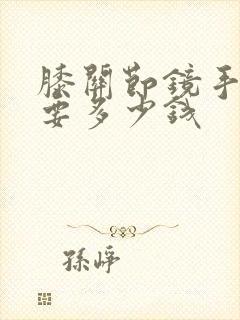 膝關節鏡手
要多少錢
孫崢